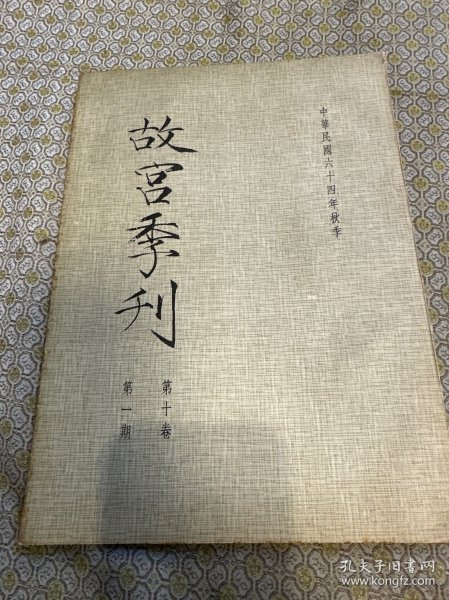 中華民國六十四年秋季
故宮季刊
第十卷
第一期
孔夫子旧书网
www.kongfz.com